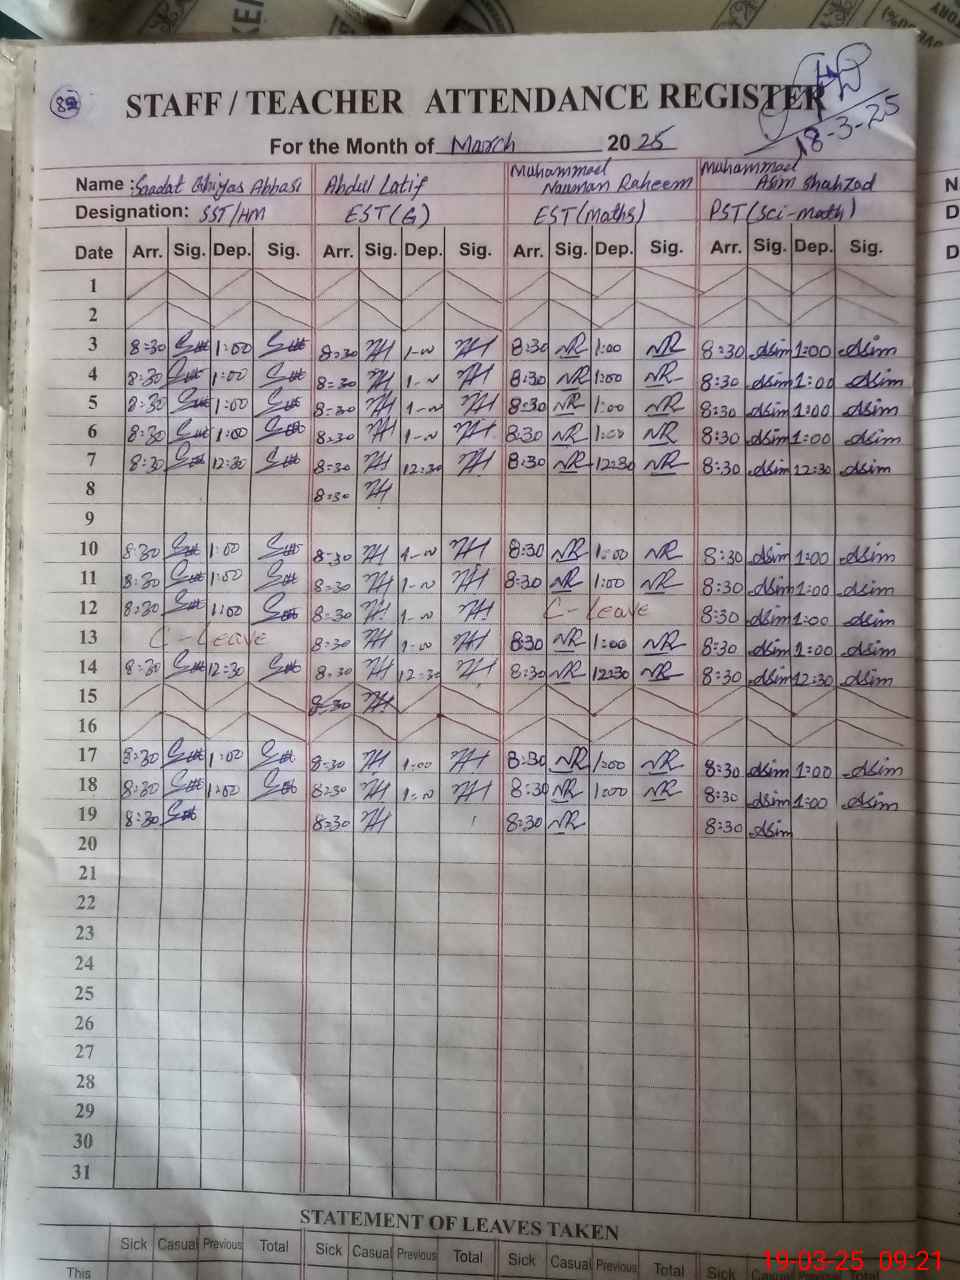 82
STAFF / TEACHER ATTENDANCE REGISTER
18-3-25
For the Month of March 2025
Name : Saadat Ghiyas Abbasi Abdul Latif Muhammad Nauman Raheem Muhammad Asim Shahzad
Designation: SST/HM EST(G) EST(Maths) PST(Sci-math)
Date Arr. Sig. Dep. Sig. Arr. Sig. Dep. Sig. Arr. Sig. Dep. Sig. Arr. Sig. Dep. Sig.
1
2
3 8:30 1:00 8:30 1-00 8:30 NR 1:00 NR 8:30 Asim 1:00 Asim
4 8:30 1:00 8:30 1-00 8:30 NR 1:00 NR 8:30 Asim 1:00 Asim
5 8:30 1:00 8:30 1-00 8:30 NR 1:00 NR 8:30 Asim 1:00 Asim
6 8:30 1:00 8:30 1-00 8:30 NR 1:00 NR 8:30 Asim 1:00 Asim
7 8:30 12:30 8:30 12:30 8:30 NR 12:30 NR 8:30 Asim 12:30 Asim
8 8:30
9
10 8:30 1:00 8:30 1-00 8:30 NR 1:00 NR 8:30 Asim 1:00 Asim
11 8:30 1:00 8:30 1-00 8:30 NR 1:00 NR 8:30 Asim 1:00 Asim
12 8:30 1:00 8:30 1-00 C-Leave 8:30 Asim 1:00 Asim
13 C-Leave 8:30 1-00 8:30 NR 1:00 NR 8:30 Asim 1:00 Asim
14 8:30 12:30 8:30 12:30 8:30 NR 12:30 NR 8:30 Asim 12:30 Asim
15 8:30
16
17 8:30 1:00 8:30 1:00 8:30 NR 1:00 NR 8:30 Asim 1:00 Asim
18 8:30 1:00 8:30 1-00 8:30 NR 1:00 NR 8:30 Asim 1:00 Asim
19 8:30 8:30 8:30 NR 8:30 Asim
20
21
22
23
24
25
26
27
28
29
30
31
STATEMENT OF LEAVES TAKEN
Sick Casual Previous Total Sick Casual Previous Total Sick Casual Previous Total Sick
This
19-03-25 09:21